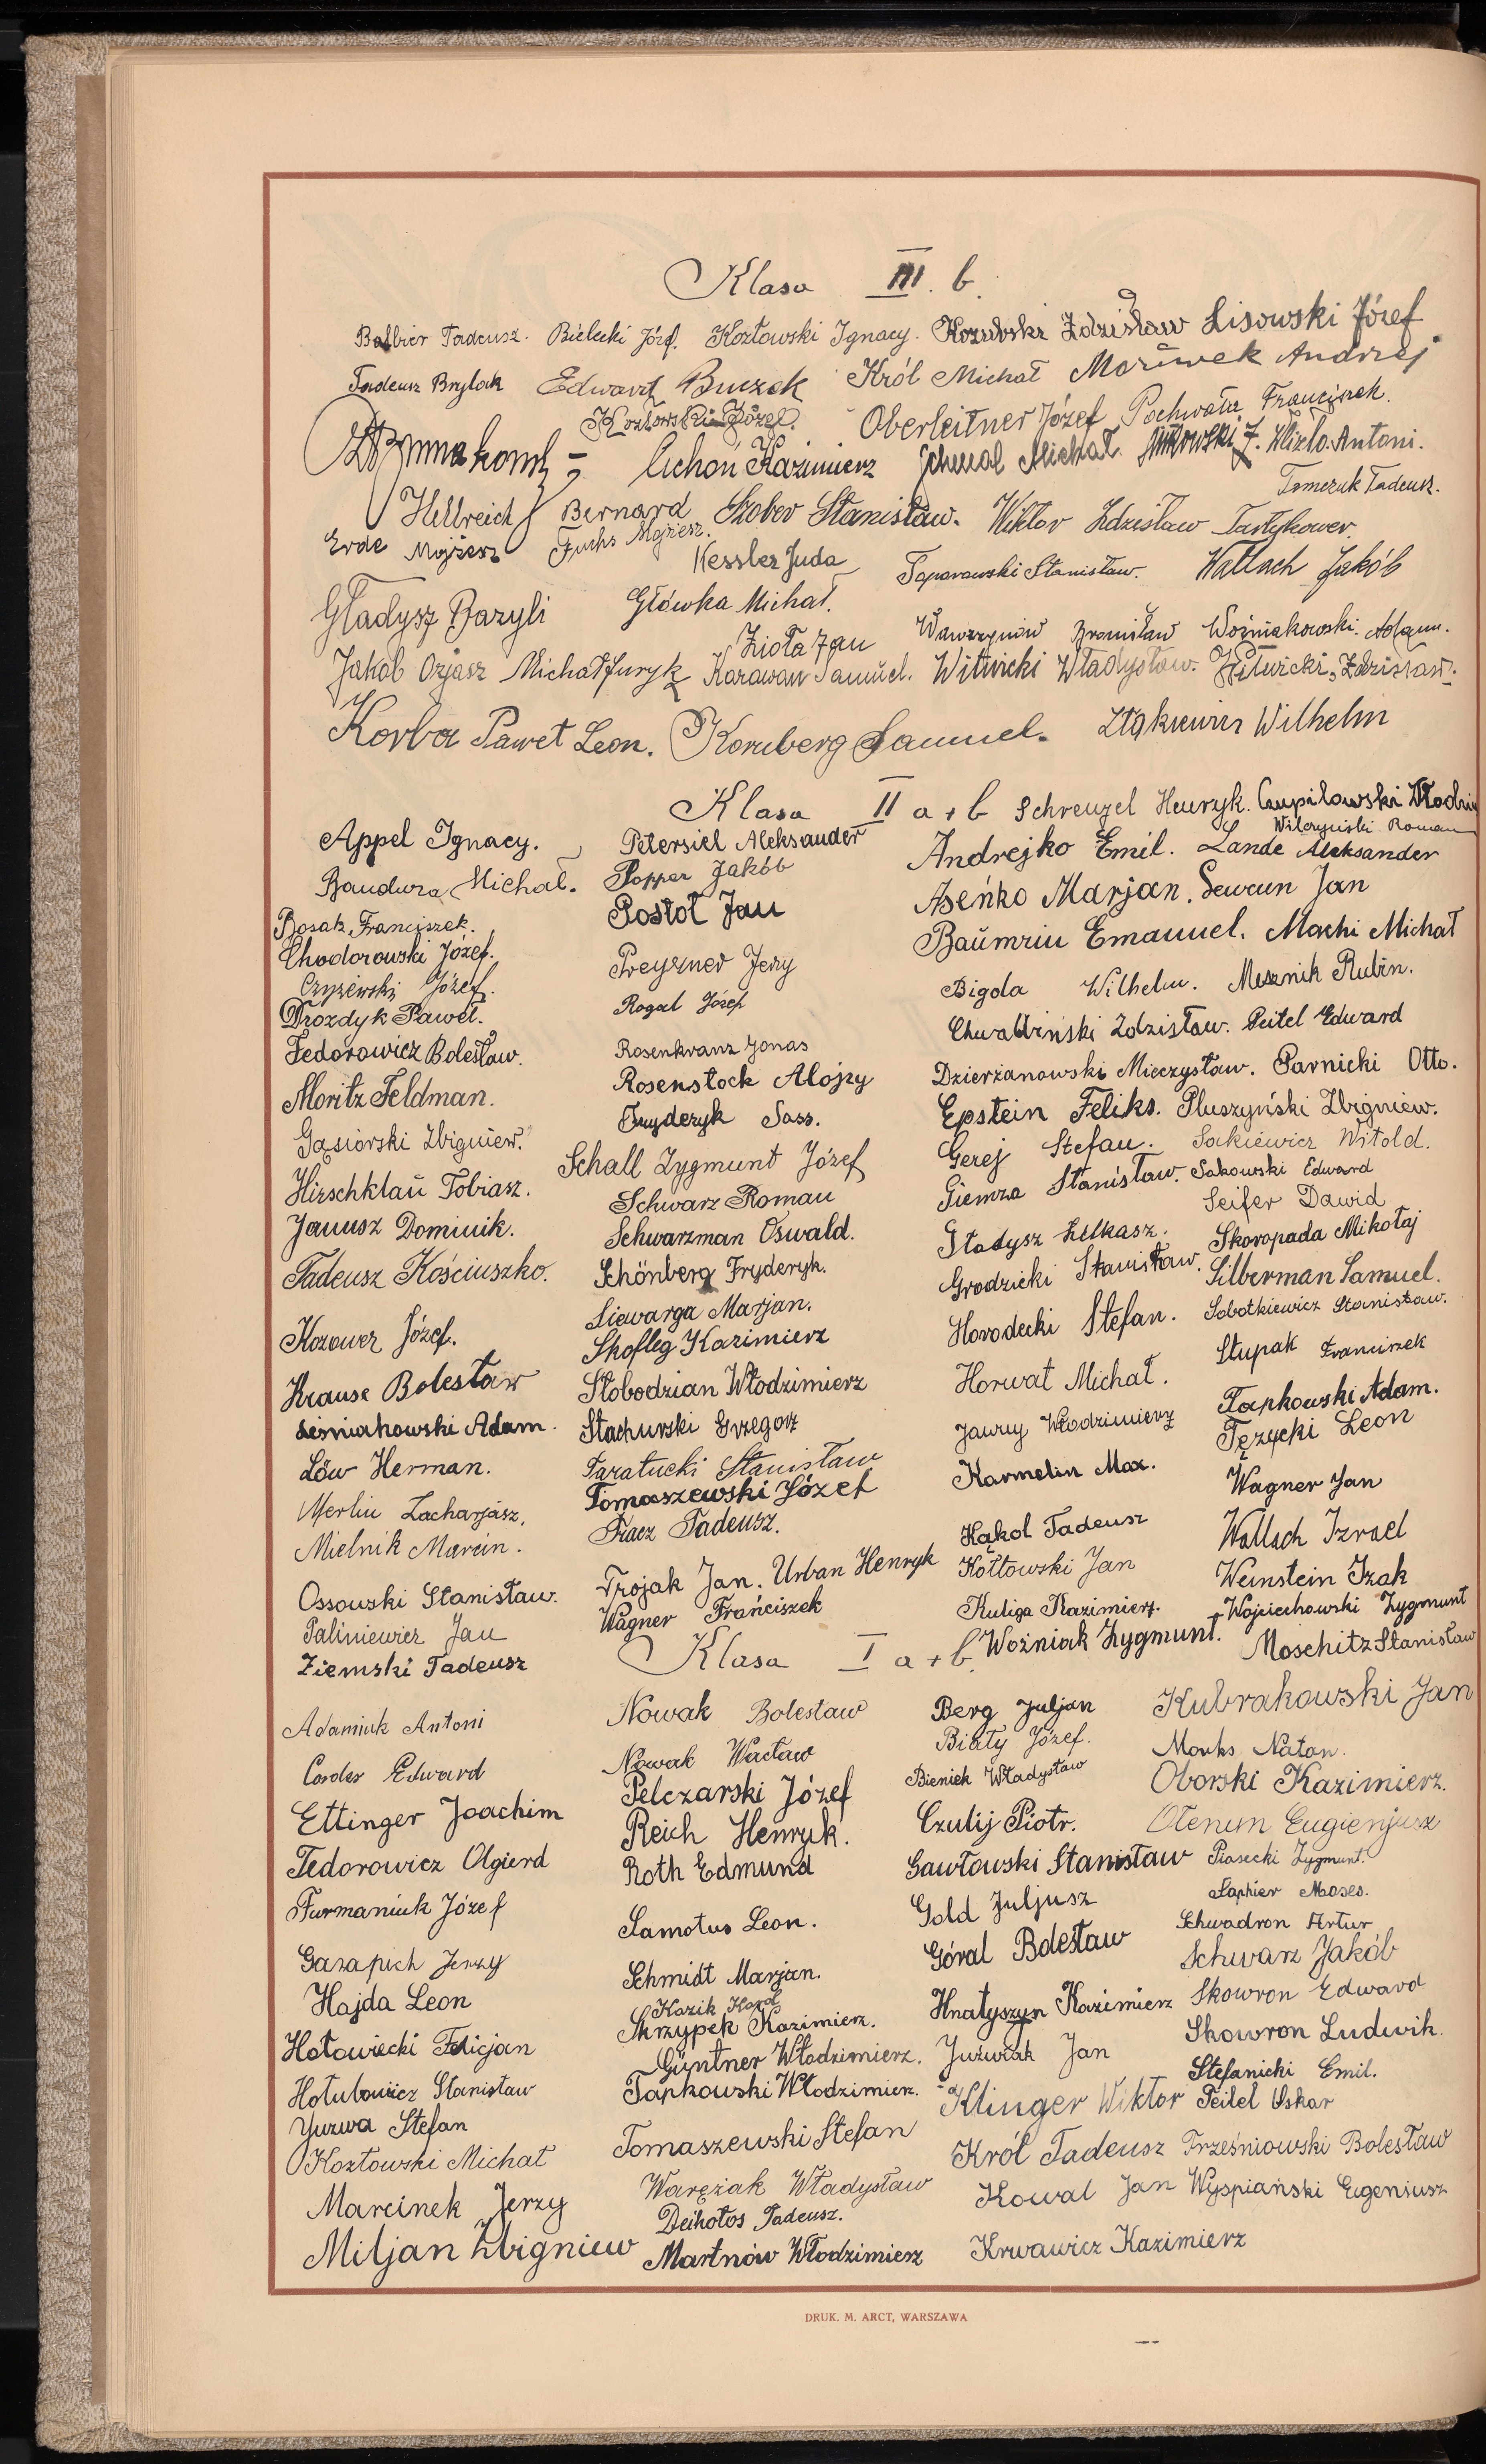 Klasa III. b.
Balbier Tadeusz. Bielecki Józf. Kozłowski Ignacy. Kozubski Zdzisław Lisowski Józef
Tadeusz Brylak Edward Buczek Król Michał Mazurek Andrzej
Kozłowski Józef. Oberleitner Józef Pochwała Franciszek.
Cichoń Kazimierz Schmal Michał. Antoni.
Tomczuk Tadeusz.
Hellreich Bernard Szober Stanisław. Wiktor Zdzisław
Erde Mojżesz Fuchs Mojżesz.
Kessler Juda Toporowski Stanisław. Wallach Jakób
Gładysz Bazyli Główka Michał.
Zioła Jan Wawrzynów Bronisław Woźniakowski Adam.
Jakób Ozjasz Michał Juryk Karawan Samuel. Witwicki Władysław. Witwicki Zdzisław.
Korba Paweł Leon. Kornberg Samuel. Wilhelm
Klasa II a + b Schrenzel Henryk. Czupiłowski Włodzim
Wilczyński Roman
Appel Ignacy. Petersiel Aleksander Andrejko Emil. Lande Aleksander
Bandura Michał. Popper Jakób Aseńko Marjan. Lewcun Jan
Bosak Franciszek. Postoł Jan Baumrin Emanuel. Machi Michał
Chodorowski Józef. Preyzner Jerzy Bigola Wilhelm. Mesznik Rubin.
Czyżewski Józef. Rogal Józef Chwaliński Zdzisław. Peitel Edward
Drozdyk Paweł.
Fedorowicz Bolesław. Rosenkranz Jonas Dzierżanowski Mieczysław. Parnicki Otto.
Moritz Feldman. Rosenstock Alojzy Epstein Feliks. Płuszyński Zbigniew.
Gąsiorski Zbigniew. Fryderyk Sass. Gerej Stefan. Sakiewicz Witold.
Hirschklau Tobiasz. Schall Zygmunt Józef Giemza Stanisław. Sakowski Edward
Seifer Dawid
Janusz Dominik. Schwarz Roman Gładysz Łukasz. Skoropada Mikołaj
Tadeusz Kościuszko. Schwarzman Oswald. Grodzicki Stanisław. Silberman Samuel.
Schönberg Fryderyk.
Kozower Józef. Siewarga Marjan. Horodecki Stefan. Sobotkiewicz Stanisław.
Skofleg Kazimierz Stupak Franciszek
Krause Bolesław Słobodzian Włodzimierz Horwat Michał. Tapkowski Adam.
Leśniakowski Adam. Stachurski Grzegorz Jawny Włodzimierz Tęzycki Leon
Löw Herman. Taratucki Stanisław Karmelin Max. Wagner Jan
Merlin Zacharjasz. Tomaszewski Józef
Mielnik Marcin. Tracz Tadeusz. Kąkol Tadeusz Wallach Izrael
Ossowski Stanisław. Trojak Jan. Urban Henryk Kołtowski Jan Weinstein Izak
Paliniewicz Jan Wagner Franciszek Kuliga Kazimierz. Wojciechowski Zygmunt
Ziemski Tadeusz Woźniak Zygmunt. Moschitz Stanisław
Klasa I a + b.
Adamiuk Antoni Nowak Bolesław Berg Juljan Kubrakowski Jan
Biały Józef.
Corder Edward Nowak Wacław Bieniek Władysław Monks Natan.
Ettinger Joachim Pelczarski Józef Czulij Piotr. Oborski Kazimierz.
Reich Henryk. Olenin Eugienjusz
Fedorowicz Olgierd Roth Edmund Gawłowski Stanisław Piasecki Zygmunt.
Furmaniuk Józef Samotus Leon. Gold Juljusz Saphier Moses.
Schwadron Artur
Garapich Jerzy Schmidt Marjan. Góral Bolesław Schwarz Jakób
Hajda Leon Kozik Karol Hnatyszyn Kazimierz Skowron Edward
Skrzypek Kazimierz.
Hołowiecki Felicjan Güntner Włodzimierz. Juzwiak Jan Skowron Ludwik.
Hołubowicz Stanisław Tapkowski Włodzimierz. Stefanicki Emil.
Yuzwa Stefan Klinger Wiktor Peitel Oskar
Kozłowski Michał Tomaszewski Stefan Król Tadeusz Trześniowski Bolesław
Marcinek Jerzy Waręzak Władysław Kowal Jan Wyspiański Eugeniusz
Deihołos Tadeusz.
Miljan Zbigniew Martnów Włodzimierz Krwawicz Kazimierz
DRUK. M. ARCT, WARSZAWA